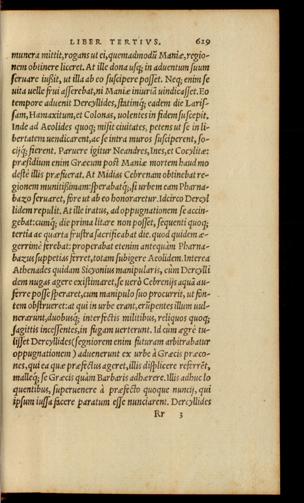 LIBER TERTIVS. 629
munera mittit, rogans ut ei, quemadmodũ Maniæ, regio-
nem obtinere liceret. At ille dona usq; in aduentum suum
seruare iußit, ut illa ab eo suscipere posset. Neq; enim se
uita uelle frui asserebat, ni Maniæ iniuriã uindicasset. Eo
tempore aduenit Dercyllides, statimq; eadem die Laris-
sam, Hamaxitum, et Colonas, uolentes in fidem suscepit.
Inde ad Aeolides quoq; misit ciuitates, petens ut se in li-
bertatem uendicarent, ac se intra muros susciperent, so-
cijq; fierent. Paruere igitur Neandres, Ilies, et Cocylitæ:
præsidium enim Græcum post Maniæ mortem haud mo
destè illis præfuerat. At Midias Cebrenam obtinebat re-
gionem munitißimam: sperabatq;, si urbem eam Pharna-
bazo seruaret, fore ut ab eo honoraretur. Idcirco Dercyl
lidem repulit. At ille iratus, ad oppugnationem se accin-
gebat: cumq; die prima litare non posset, sequenti quoq;
tertia ac quarta frustra sacrificabat die. quod quidem æ-
gerrimè ferebat: properabat etenim antequàm Pharna-
bazus suppetias ferret, totam subigere Aeolidem. Interea
Athenades quidam Sicyonius manipularis, cùm Dercylli
dem nugas agere existimaret, se uerò Cebrenijs aquã au-
ferre posse speraret, cum manipulo suo procurrit, ut fon-
tem obstrueret: at qui in urbe erant, erũpentes illum uul-
nerarunt, duobusq; interfectis militibus, reliquos quoq;
sagittis incessentes, in fugam uerterunt. Id cum ægrè tu-
lisset Dercyllides (segniorem enim futuram arbitrabatur
oppugnationem) aduenerunt ex urbe à Græcis præco-
nes, qui ea quæ præfectus ageret, illis displicere referrẽt,
malleq; se Græcis quàm Barbaris adhærere. Illis adhuc lo
quentibus, superuenere à præfecto quoque nuncij, qui
ipsum iussa facere paratum esse nunciarent. Dercyllides
Rr 3